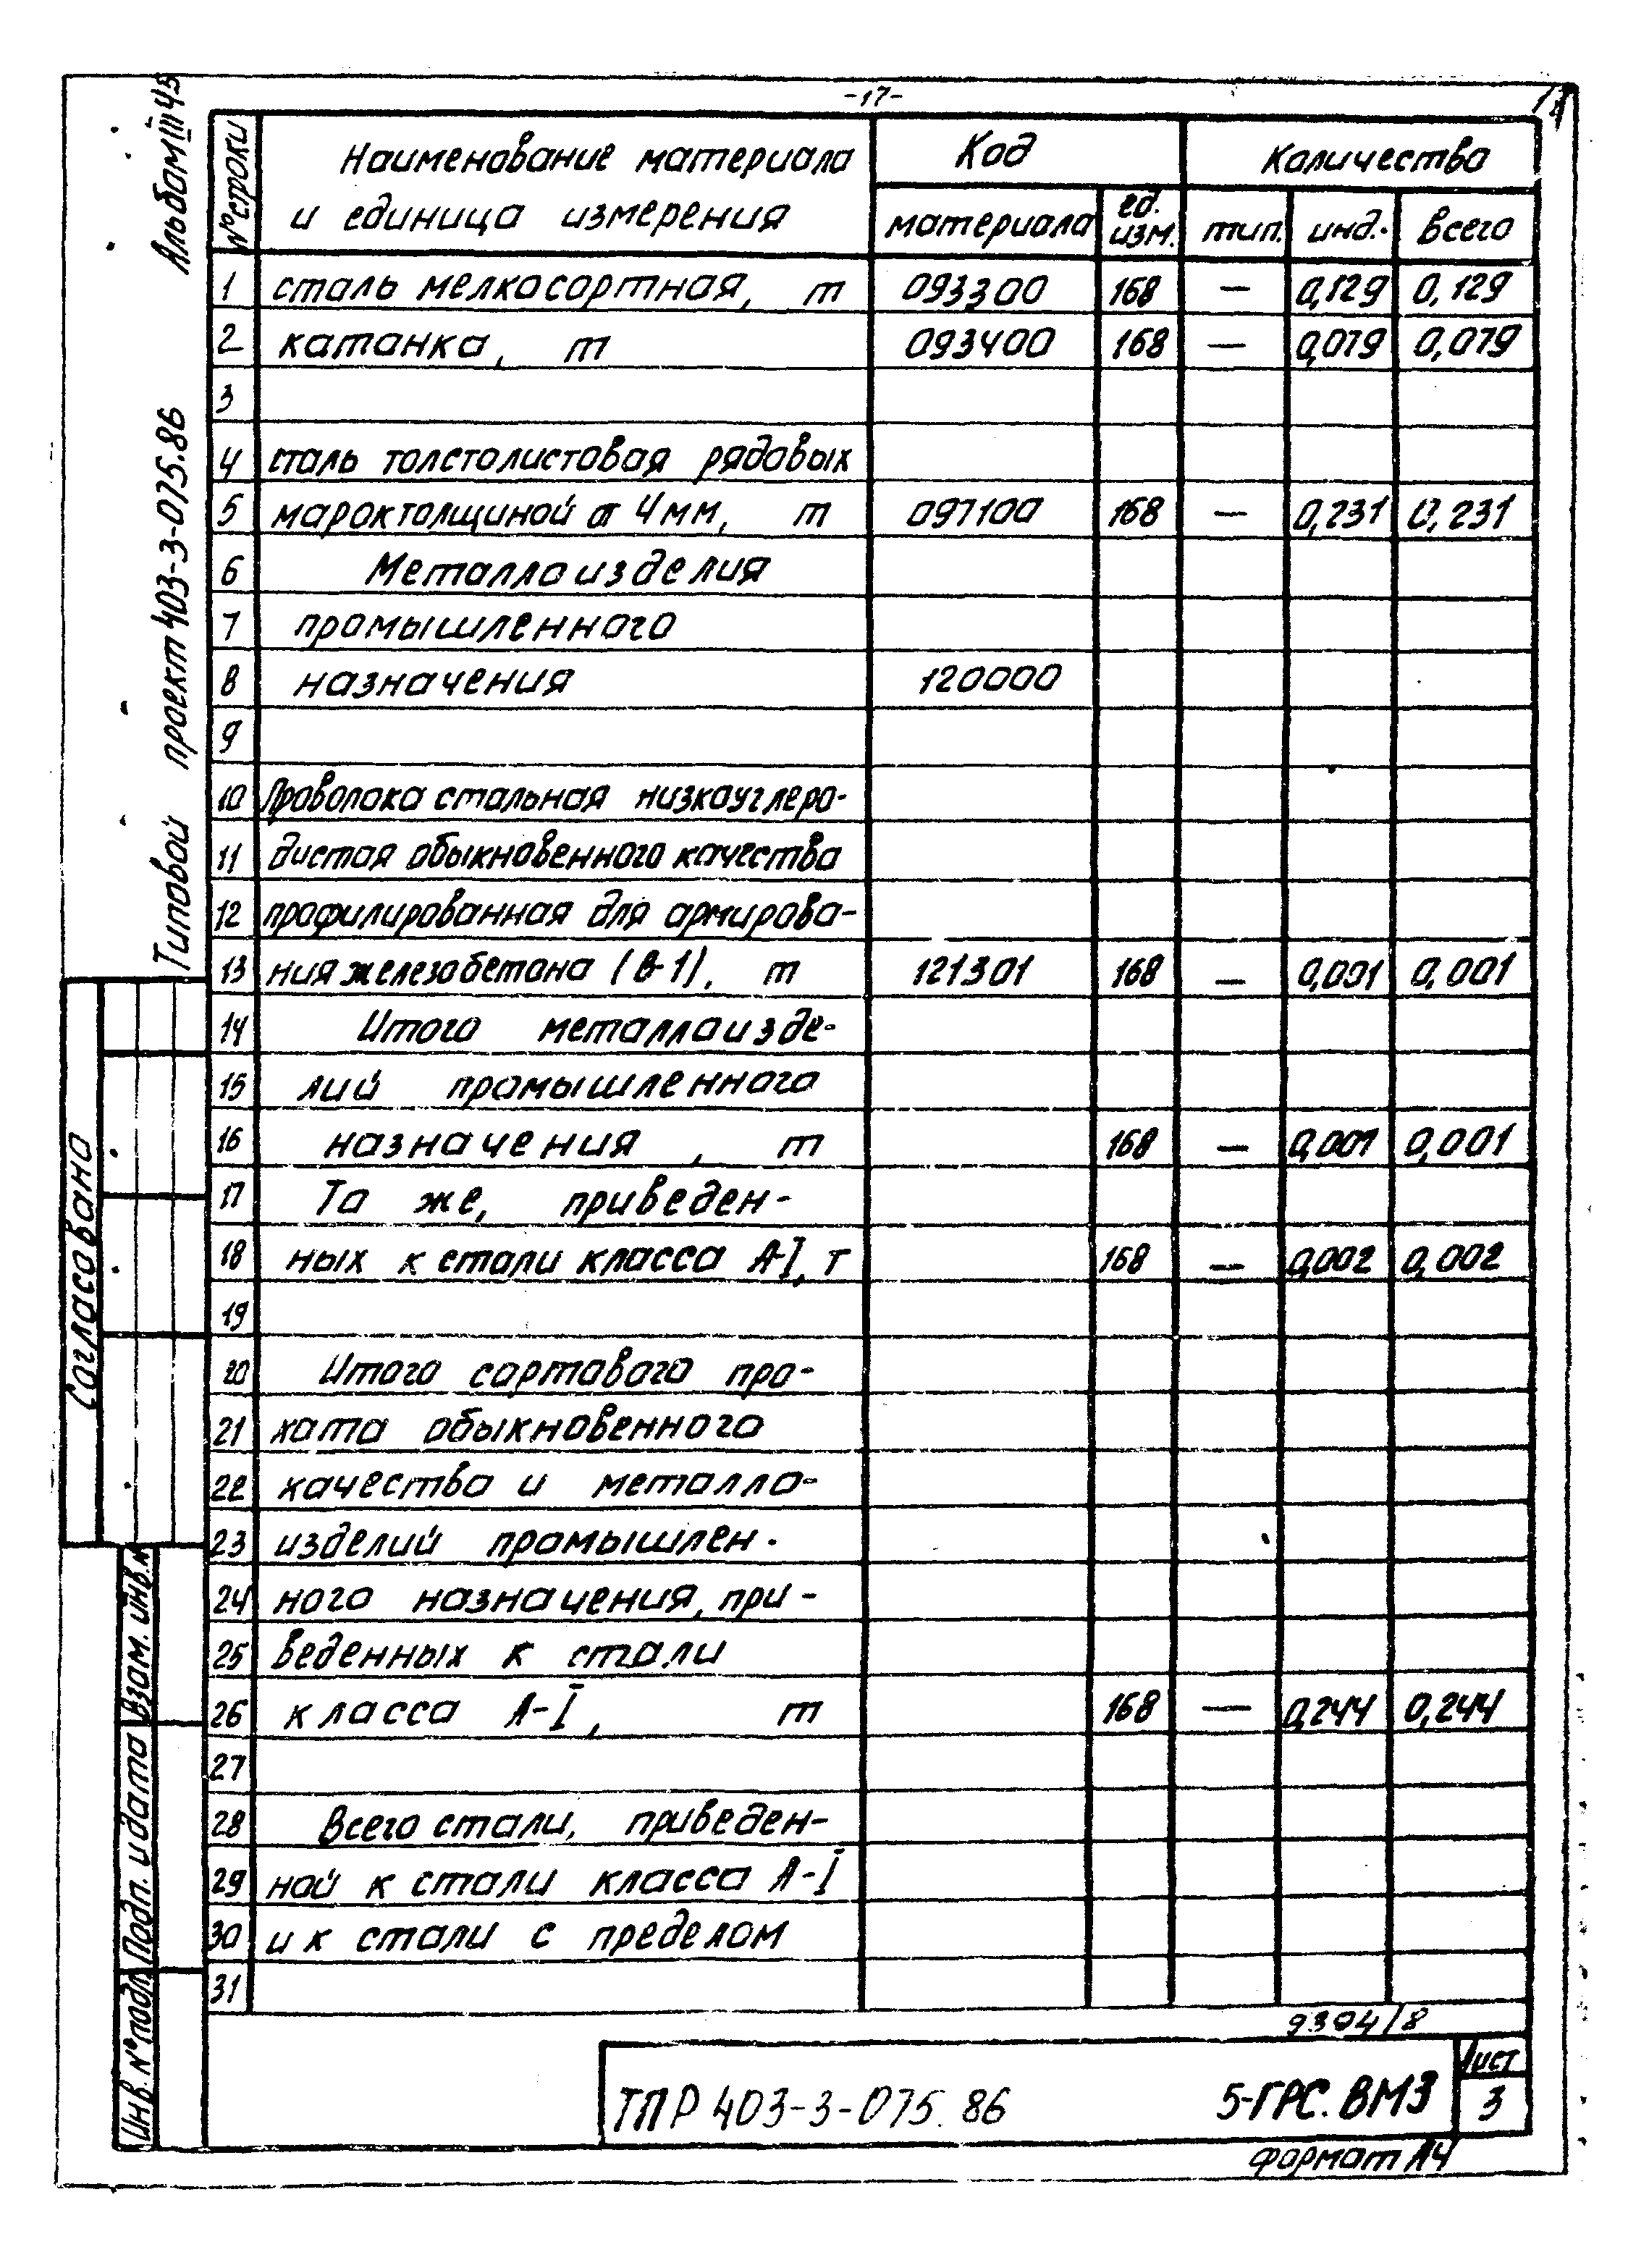 -17-
Альбом III 45
Типовой проект 403-3-075.86
№ строки
Наименование материала
и единица измерения
Код
Количество
материала
ед. изм.
тип.
инд.
всего
1 сталь мелкосортная, т 093300 168 — 0,129 0,129
2 катанка, т 093400 168 — 0,079 0,079
3
4 сталь толстолистовая рядовых
5 марок толщиной от 4 мм, т 097100 168 — 0,231 0,231
6 Металлоизделия
7 промышленного
8 назначения 120000
9
10 Проволока стальная низкоуглеро-
11 дистая обыкновенного качества
12 профилированная для армирова-
13 ния железобетона (В-1), т 121301 168 — 0,001 0,001
14 Итого металлоизде-
15 лий промышленного
16 назначения, т 168 — 0,001 0,001
17 То же, приведен-
18 ных к стали класса А-I, т 168 — 0,002 0,002
19
20 Итого сортового про-
21 ката обыкновенного
22 качества и металло-
23 изделий промышлен-
24 ного назначения, при-
25 веденных к стали
26 класса А-I, т 168 — 0,244 0,244
27
28 Всего стали, приведен-
29 ной к стали класса А-I
30 и к стали с пределом
31
Согласовано
Взам. инв. №
Подп. и дата
Инв. № подл.
9304/8
ТПР 403-3-075.86 5-ГРС.ВМ3
Лист
3
формат А4